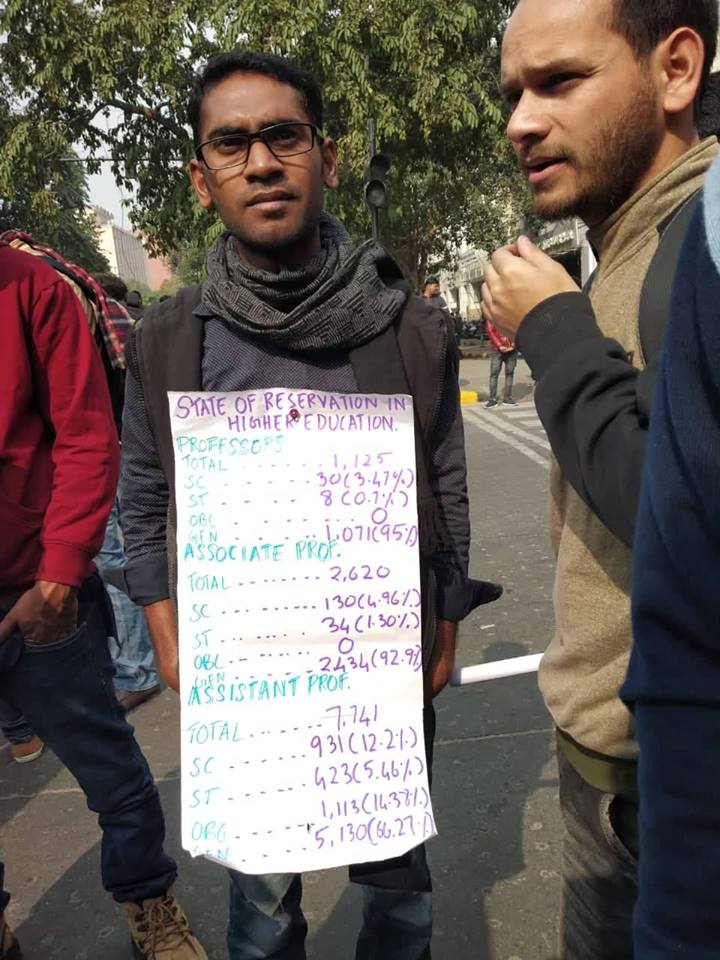 STATE OF RESERVATION IN
HIGHER EDUCATION.
PROFFSSORS
TOTAL -------- 1,125
SC - - - - - - 30(3.47%)
ST - - - - - - 8(0.7%)
OBC - - - - - - 0
GEN - - - - - 1,071(95%)
ASSOCIATE PROF.
TOTAL -------- 2,620
SC - - - - - - 130(4.96%)
ST - - - - - - 34(1.30%)
OBC - - - - - - 0
GEN - - - - - 2434(92.9%
ASSISTANT PROF.
TOTAL -------- 7,741
SC - - - - - - 931(12.2%)
ST - - - - - - 423(5.46%)
OBC - - - - - - 1,113(14.38%)
GEN - - - - - 5,130(66.27%)